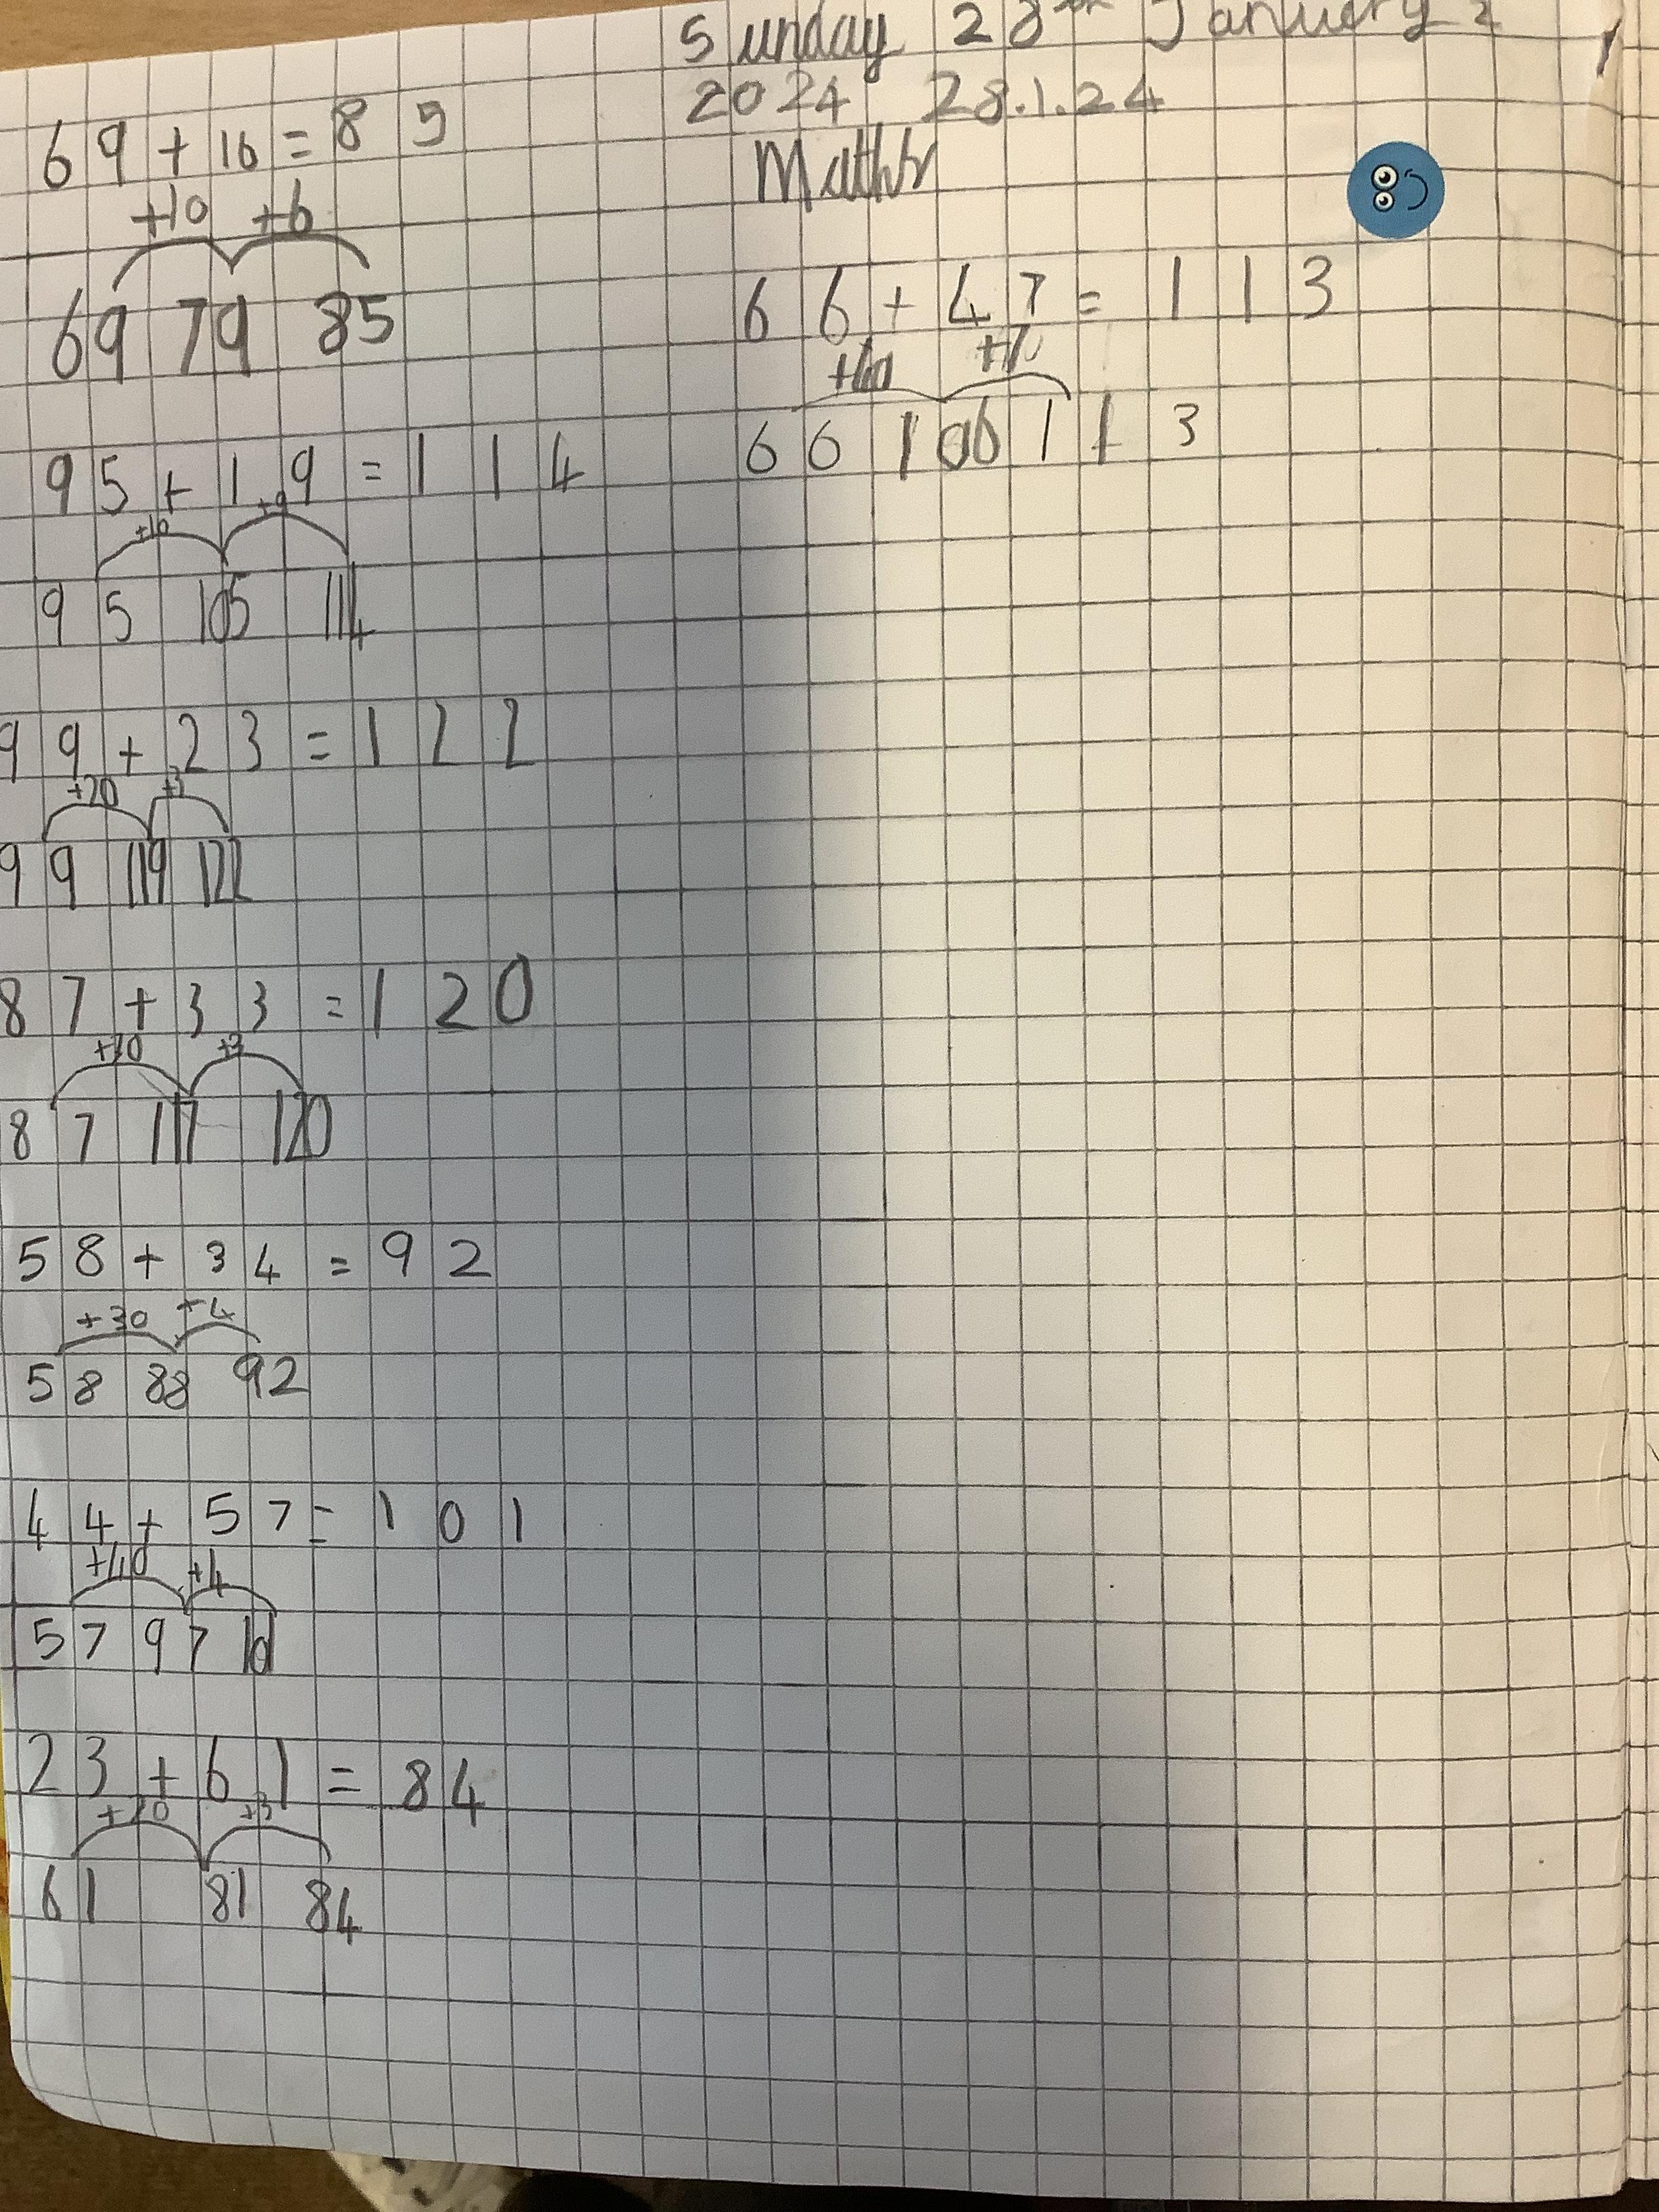 69+16=85
+10 +6
69 79 85
95+19=114
+10 +9
95 105 114
99+23=122
+20 +3
99 119 122
87+33=120
+30 +3
87 117 120
58+34=92
+30 +4
58 88 92
44+57=101
+40 +4
57 97 101
23+61=84
+20 +3
61 81 84
Sunday 28th January
2024 28.1.24
Maths
66+47=113
+40 +7
66 106 113